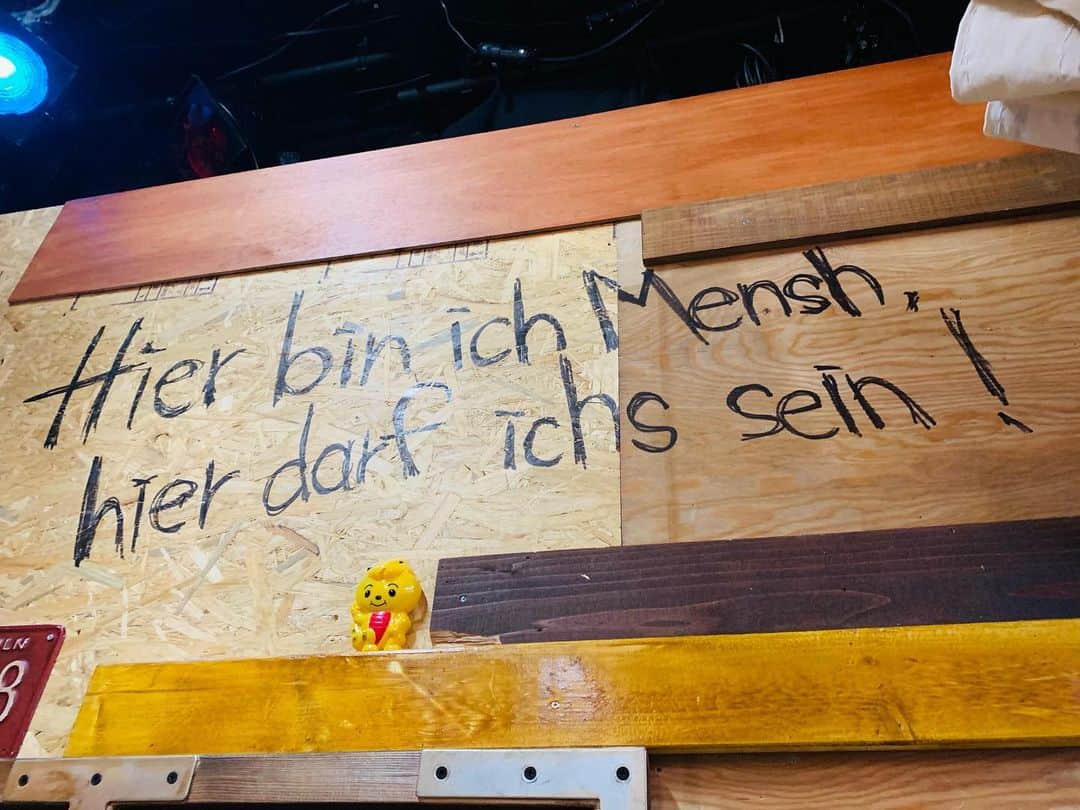 Hier bin ich Mensh,
hier darf ichs sein!
8